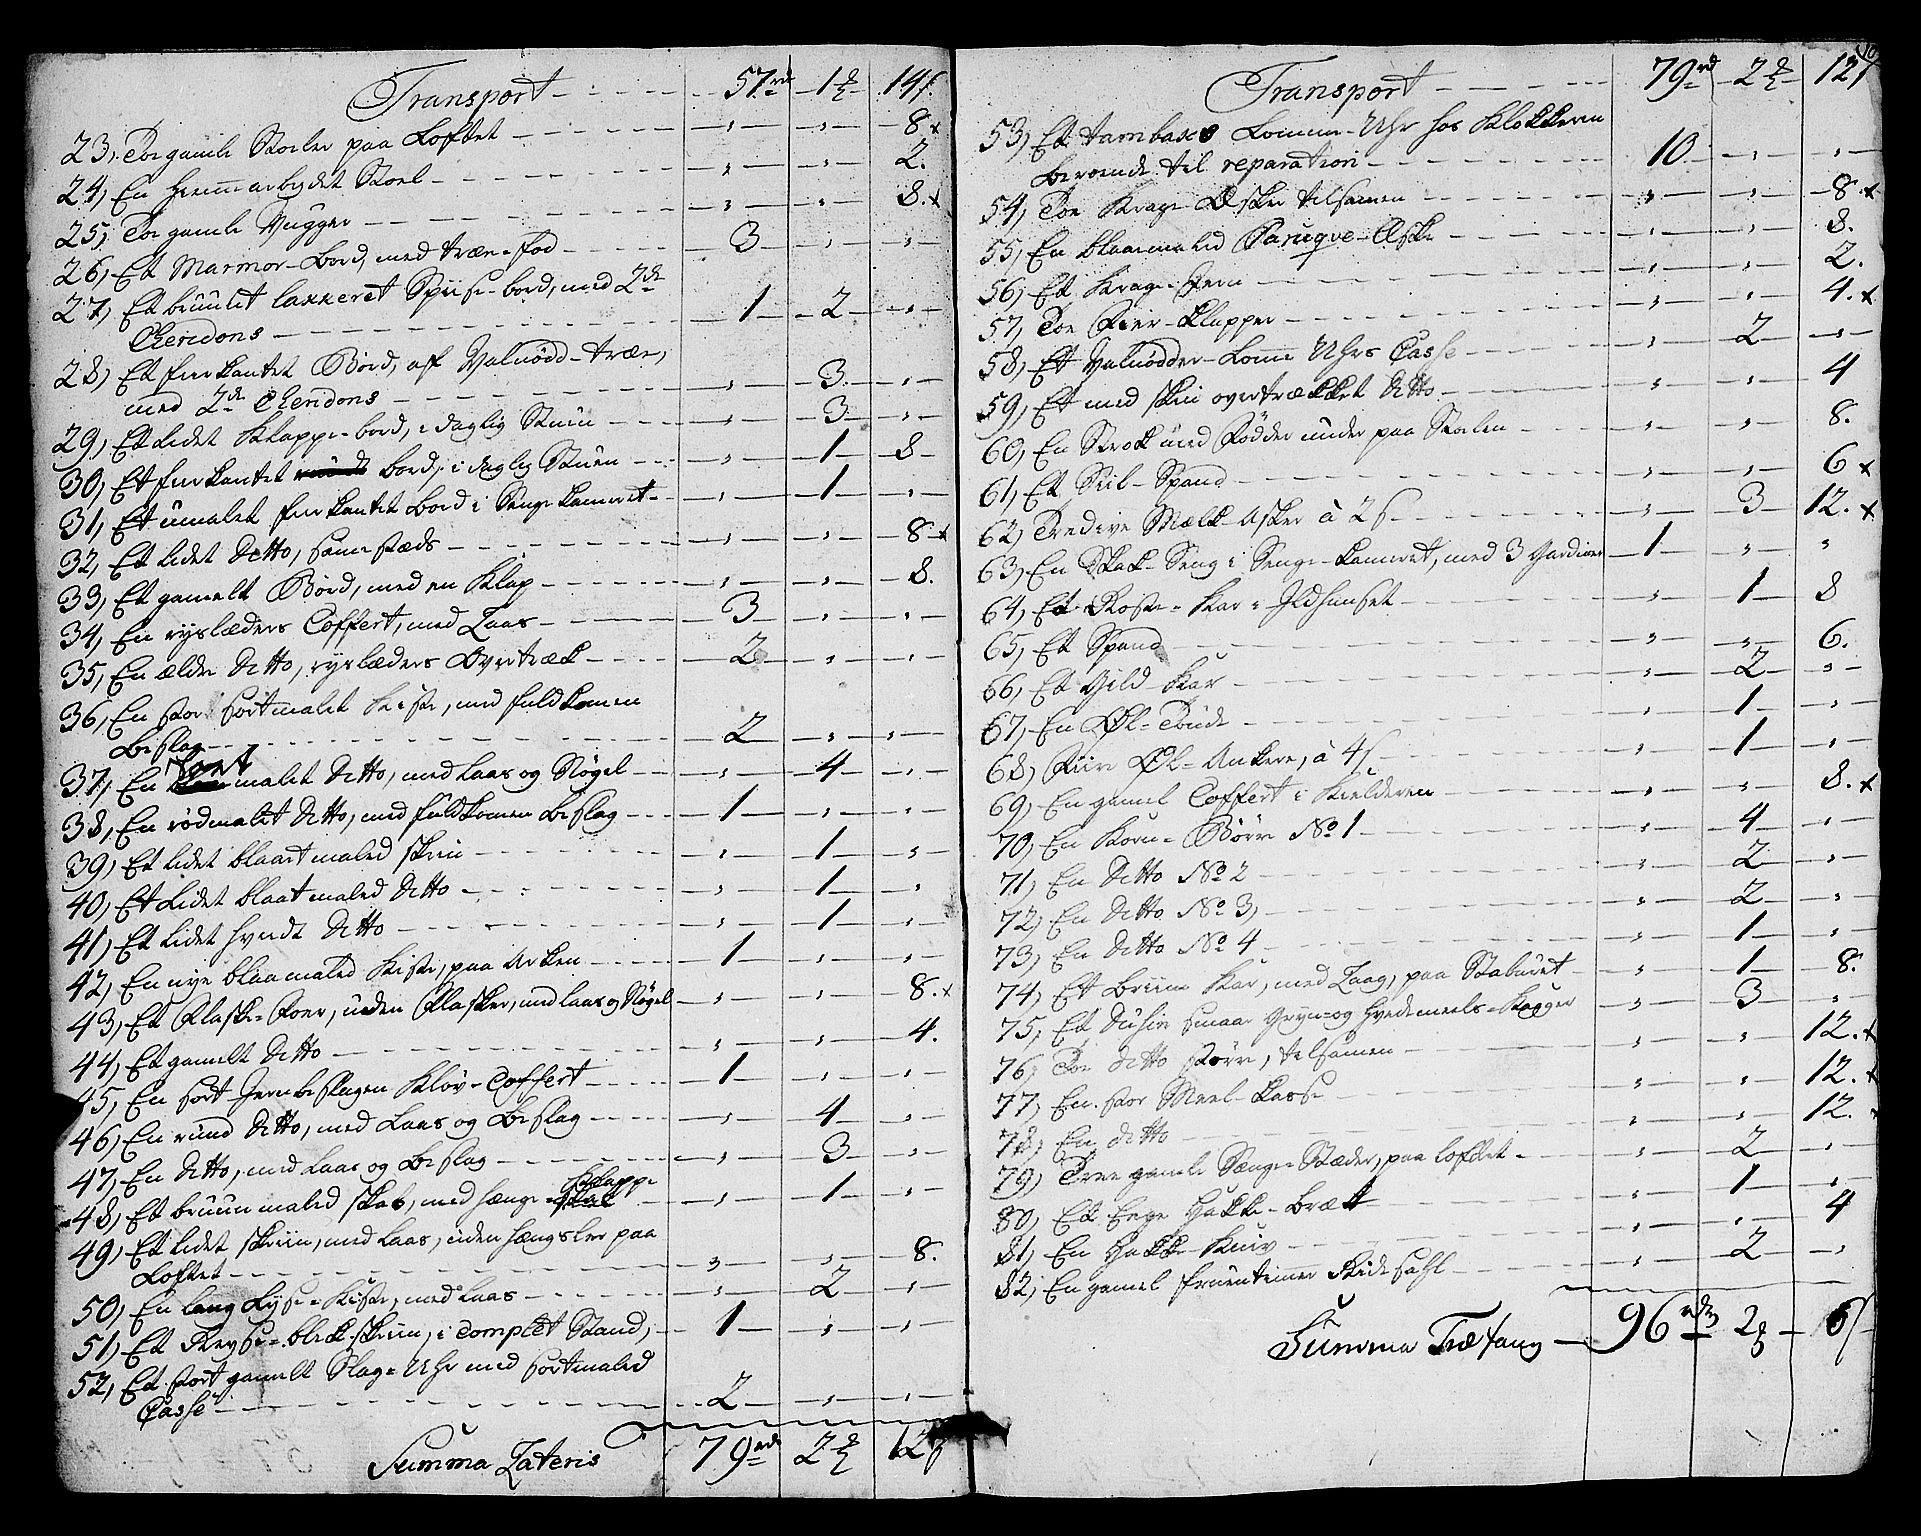 Transport 57rd 1 ₰ 14 ſ.
23, Toe gamle Stoeler paa Loftet " " 8. x
24, En hiemmarbeydet Stoel " " 2.
25, Toe gamle Vugger " " 8. x
26, Et Marmor-bord, med træe-fod 3 " "
27, Et bruunt lakkeret Spiise-bord, med 2de
Gueridons 1 2 "
28, Et fiirkantet Bord, af Valnødd-træe,
med 2de Gueridons " 3 "
29, Et Lidet Klappe-bord, i daglig Stuen " 3 "
30, Et fiirkantet bord, i daglig Stuen " 1 8
31, Et umalet fiirkantet bord i Senge kameret " 1 "
32, Et lidet Ditto, samestæds " " 8 x
33, Et gamelt Bord, med en Klap " " 8.
34, En ryslæders Coffert, med Laas 3 " "
35, En ælder Ditto, ryslæders Overtræk 2 " "
36, En stor sortmalet Kiste, med fuldkomen
Beslag 2 " "
37, En Sort malet Ditto, med Laas og Nøgel " 4 "
38, En rødmalet Ditto, med fuldkomen Beslag 1 " "
39, Et lidet blaat maled skriin " 1 "
40, Et Lidet blaat maled Ditto " 1 "
41, Et lidet hvidt Ditto " 1 "
42, En nye blaamaled Kiste, paa Arken 1 " "
43, Et Flaske-Foer, uden Flasker, med laas og Nøgel " " 8. x
44, Et gamelt Ditto " " 4.
45, En sort Jernbeslagen Kløv-Coffert 1 " "
46, En rund Ditto, med Laas og Beslag " 4 "
47, En Ditto, med Laas og Beslag " 3 "
48, Et bruun maled skab, med hænge-Klappe " 1 "
49, Et lidet skriin, med Laas, uden hængsler paa
Loftet " " 8.
50, En lang Lyse-Kiste, med Laas " 2 "
51, Et Reyse-blek-skriin, i complet Stand, 1 " "
52, Et stort gamelt Slag-Uhr med sortmaled
Casse 2 " "
Summa Lateris 79rd 2 ₰ 12 ſ
Transport 79rd 2 ₰ 12 ſ
53, Et tambaks Lomme-Uhr hos Klokkeren
beroende til reparation 10 " "
54, Toe Krage Æsker tilsamen " " 8. x
55, En blaaemaled Paruqve-Æske " " 8.
56, Et Krage-Jern " " 2.
57, Toe Klapper " " 4. x
58, Et Valnødde-Lomme Uhrs Casse " 2 "
59, Et med skin overtrækket Ditto " " 4
60, En Strok med Fødder under paa Stoelen " " 8.
61, Et Siil-Spand " " 6 x
62, Tredive Mælk-Asker à 2 ſ " 3 12. x
63, En Skak-Seng i Senge-kameret, med 3 Gardiner 1 " "
64, Et Roste-Kar i Ildhuuset " 1 8
65, Et Spand " " 6.
66, Et Gield-Kar " 2 "
67, En Øl-Tønde " 1 "
68, Fiire Øl-Ankere, à 4 ſ " 1 "
69, En gamel Coffert i Kielderen " " 8. x
70, En Korn-Børe No 1 " 4 "
71, En Ditto No 2 " 2 "
72, En Ditto No 3, " 2 "
73, En Ditto No 4 " 1 "
74, Et Bruun Kar, med Laag, paa Stabuuret " 1 8.
75, Et Dusin smaae Gryn-og Hvedemeels-Kagger " 3 "
76, Toe ditto større, tilsamen " " 12. x
77, En stor Meel-Kasse " " 12. x
78, En ditto " " 12.
79, Tree gamle Senge-Stæder, paa loftet " 2 "
80, Et Eege Hakke-Bræt " 1 "
81, En Hakke-Kniv " " 4
82, En gamel fruentimer Ridesahl " 2 "
Summa Træ fang 96rd 2 ₰ 6 ſ